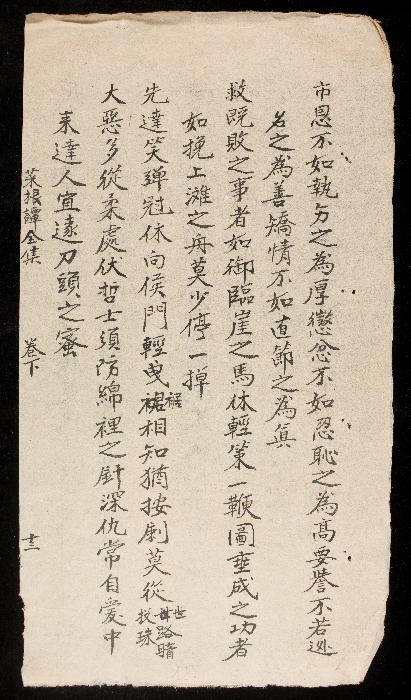 市恩不如執方之為厚懲忿不如忍恥之為高要譽不若逃
名之為善矯情不如直節之為眞
救既敗之事者如御臨崖之馬休輕策一鞭圖垂成之功者
如挽上灘之舟莫少停一掉
先達笑彈冠休向侯門輕曳裾相知猶按劍莫從世路暗投珠
大惡多從柔處伏哲士須防綿裡之針深仇常自愛中
来達人宜遠刀頭之蜜
菜根譚全集 卷下 十二